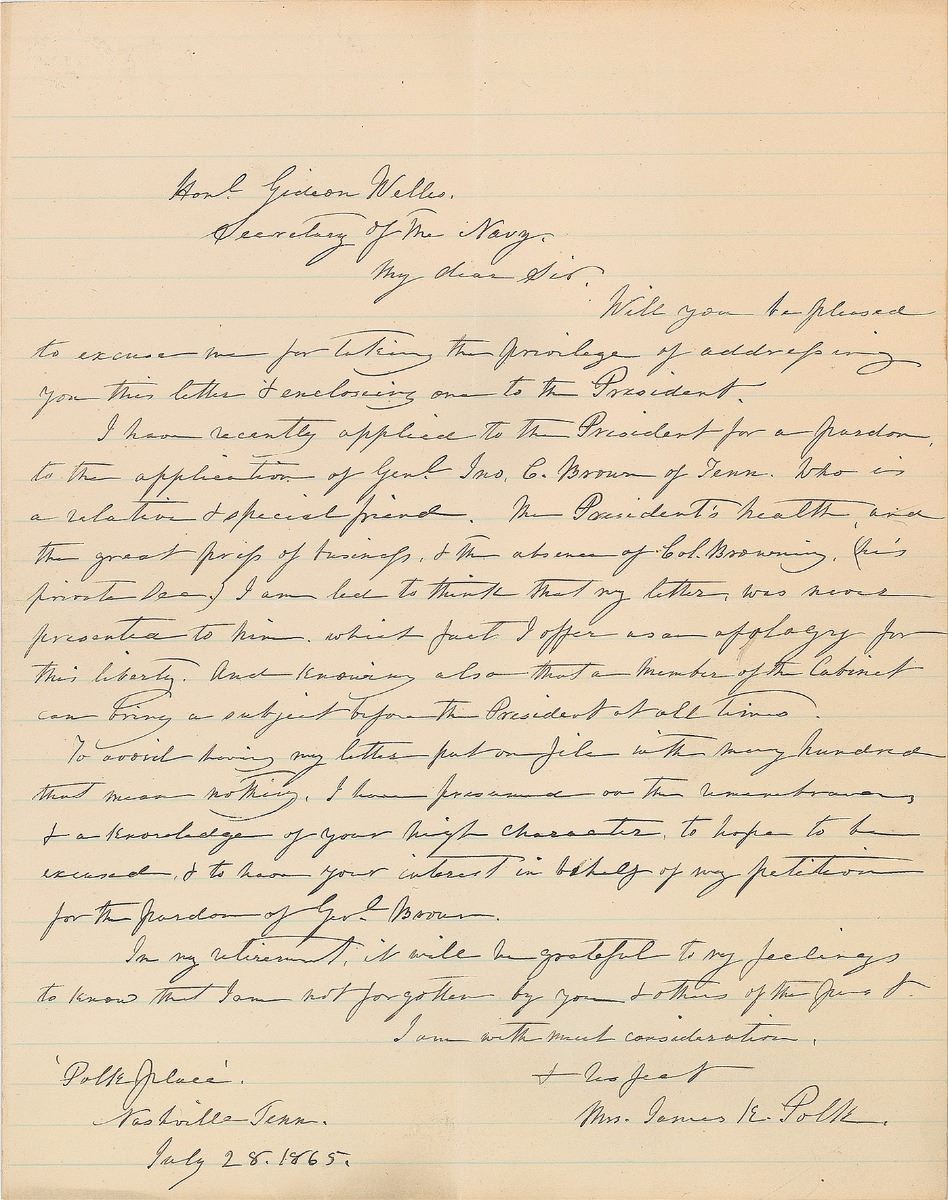 Honl. Gideon Welles.
Secretary of the Navy.
My dear Sir.
Will you be pleased
to excuse me for taking the privilege of addressing
you this letter & enclosing one to the President.
I have recently applied to the President for a pardon,
to the application of Genl. Jno. C. Brown of Tenn. Who is
a relative & special friend. The President's health, and
the great press of business, & the absence of Col. Browning, (his
private Sec.) I am led to think that my letter, was never
presented to him. which fact I offer as an apology for
this liberty. And knowing also that a member of the Cabinet
can bring a subject before the President at all times.
To avoid having my letter put on file with many hundred
that mean nothing, I have presumed on the remembrance,
& a knowledge of your high character, to hope to be
excused, & to have your interest in behalf of my petition
for the pardon of Genl. Brown.
In my retirement, it will be grateful to my feelings
to know that I am not forgotten by you & others of the past.
I am with much consideration,
& respect
Mrs. James K. Polk.
'Polk place'.
Nashville Tenn.
July 28. 1865.